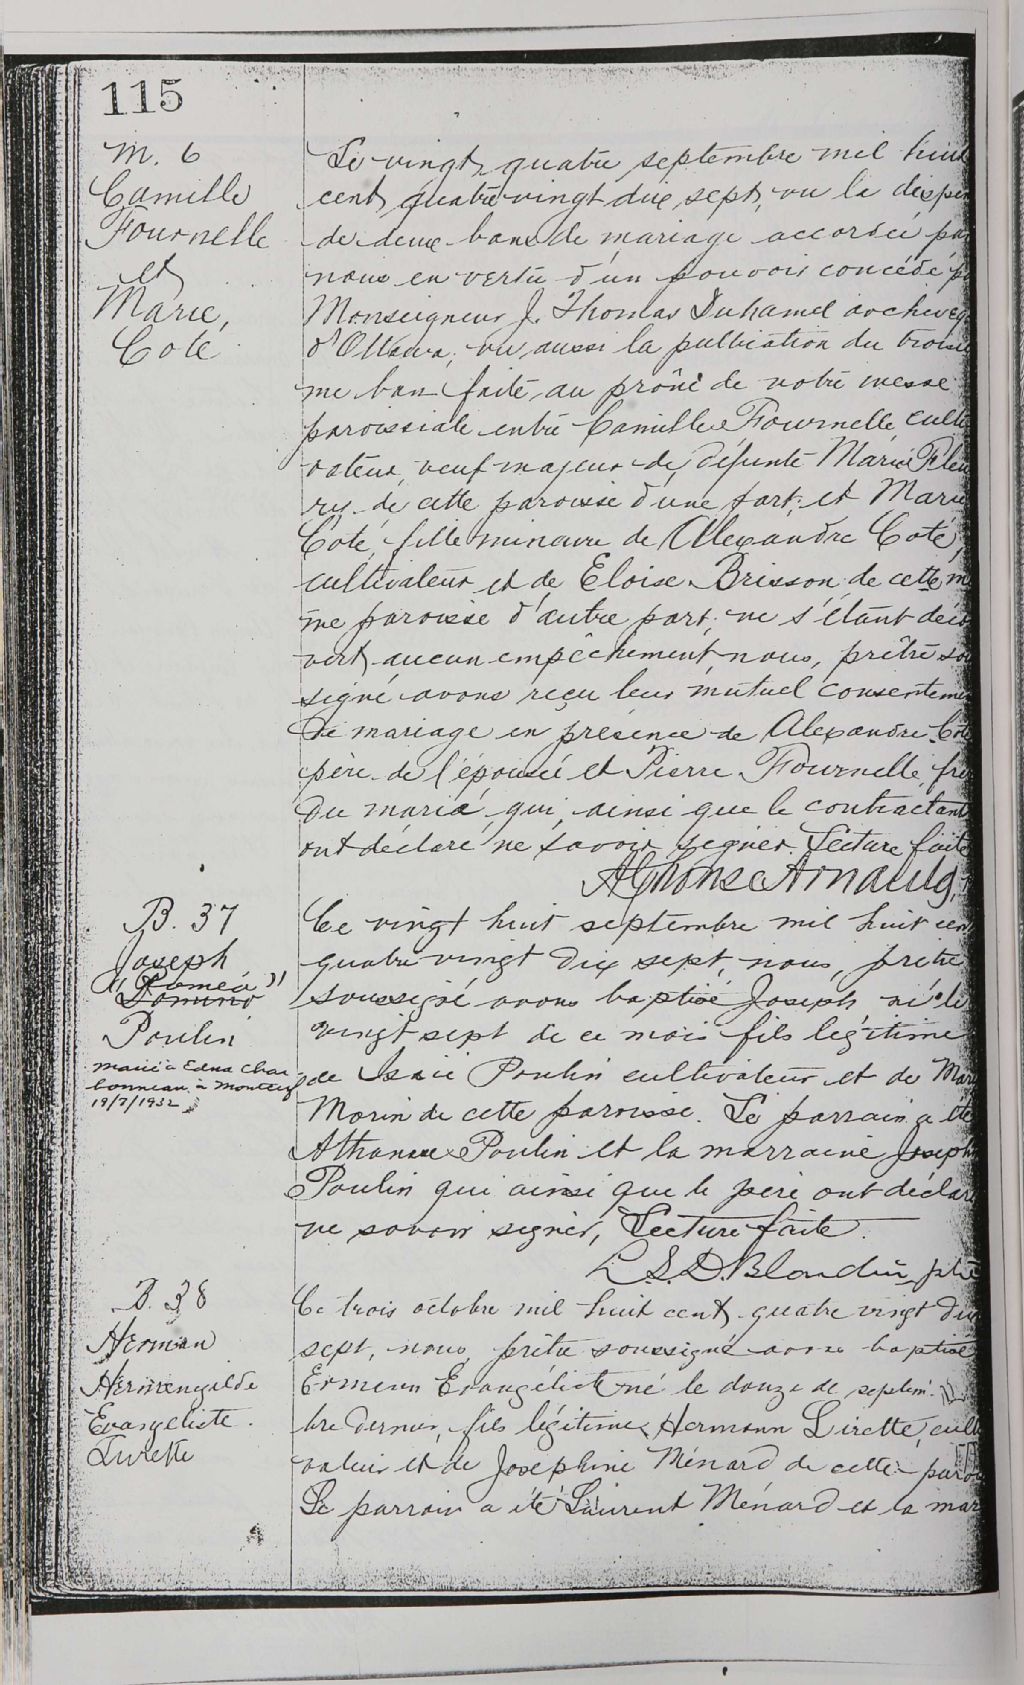 115
M. 6
Camille
Fournelle
et
Marie
Coté
Le vingt quatre septembre mil huit
cent quatre vingt dix sept, vu la dispen
de deux bans de mariage accordée pa
nous en vertu d'un pouvoir concédé p
Monseigneur J. Thomas Duhamel archevêq
d'Ottawa, vu aussi la publication du troisiè
me ban faite au prône de notre messe
paroissiale entre Camille Fournelle, culti
vateur, veuf majeur de défunte Marie Fleu
ry de cette paroisse d'une part; et Marie
Coté, fille mineure de Alexandre Coté,
cultivateur et de Eloise Brisson de cette m
me paroisse d'autre part; ne s'étant déco
vert aucun empêchement, nous, prêtre sou
signé avons reçu leur mutuel consenteme
de mariage en présence de Alexandre Coté
père de l'épousée et Pierre Fournelle, frè
du marié, qui, ainsi que le contractant
ont déclaré ne savoir signer. Lecture faite
Alphonse Arnault,
B. 37
Joseph
"Roméo"
Domino
Poulin
marié à Edna Char
bonneau à Montcerf
19/7/1932
Ce vingt huit septembre mil huit cen
quatre vingt dix sept, nous, prêtre
soussigné avons baptisé Joseph né le
vingt sept de ce mois fils légitime
de Isaïe Poulin cultivateur et de Mary
Morin de cette paroisse. Le parrain a été
Athanase Poulin et la marraine Joseph
Poulin qui ainsi que le père ont déclaré
ne savoir signer, Lecture faite.
L. S. D. Blondin, ptre
B. 38
Herman
Herménégilde
Evangéliste
Lirette
Ce trois octobre mil huit cent quatre vingt dix
sept, nous, prêtre soussigné avons baptisé
Ermenn Evangéliste né le douze de septem-
bre dernier, fils légitime Hermann Lirette, culti
vateur et de Joséphine Ménard de cette paroi
Le parrain a été Laurent Ménard et la mar